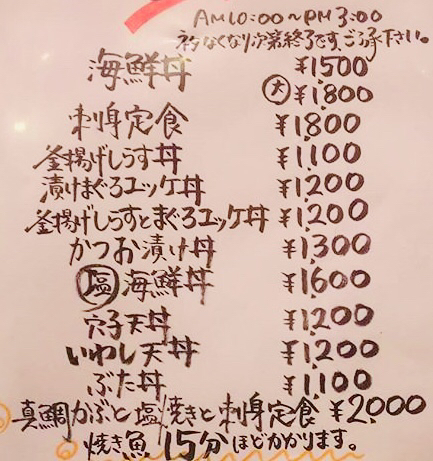 AM10:00～PM3:00
ネタなくなり次第終了です。ご了承下さい。
海鮮丼 ¥1500
大 ¥1,800
刺身定食 ¥1800
釜揚げしらす丼 ¥1,100
漬けまぐろユッケ丼 ¥1,200
釜揚げしらすとまぐろユッケ丼 ¥1,200
かつお漬け丼 ¥1,300
塩 海鮮丼 ¥1,600
穴子天丼 ¥1200
いわし天丼 ¥1,200
ぶた丼 ¥1,100
真鯛かぶと塩焼きと刺身定食 ¥2,000
焼き魚 15分ほどかかります。